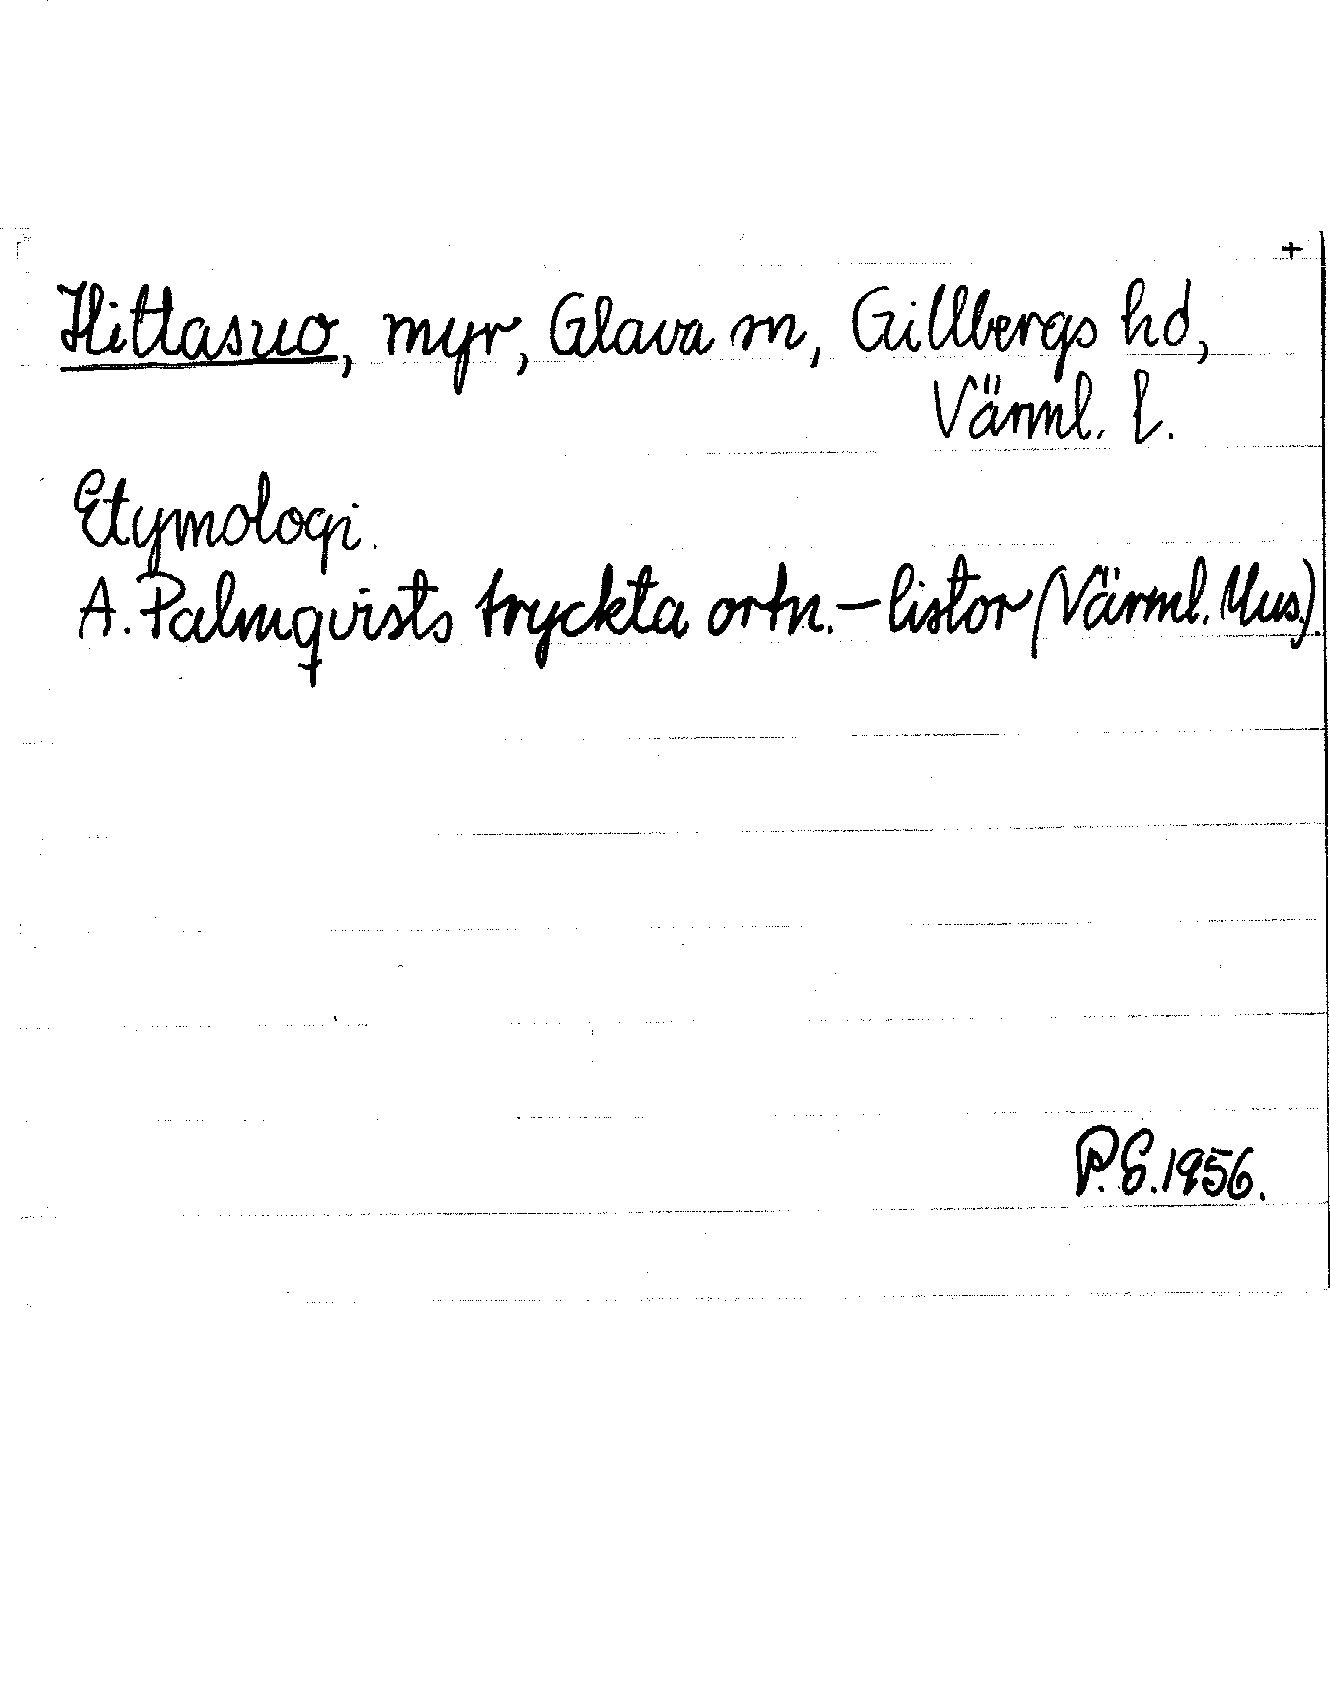 +
Hittasuo, myr, Glava sn, Gillbergs hd,
Värml. l.
Etymologi.
A. Palmqvists tryckta ortn.-listor (Värml. Mus.).
P.E. 1956.